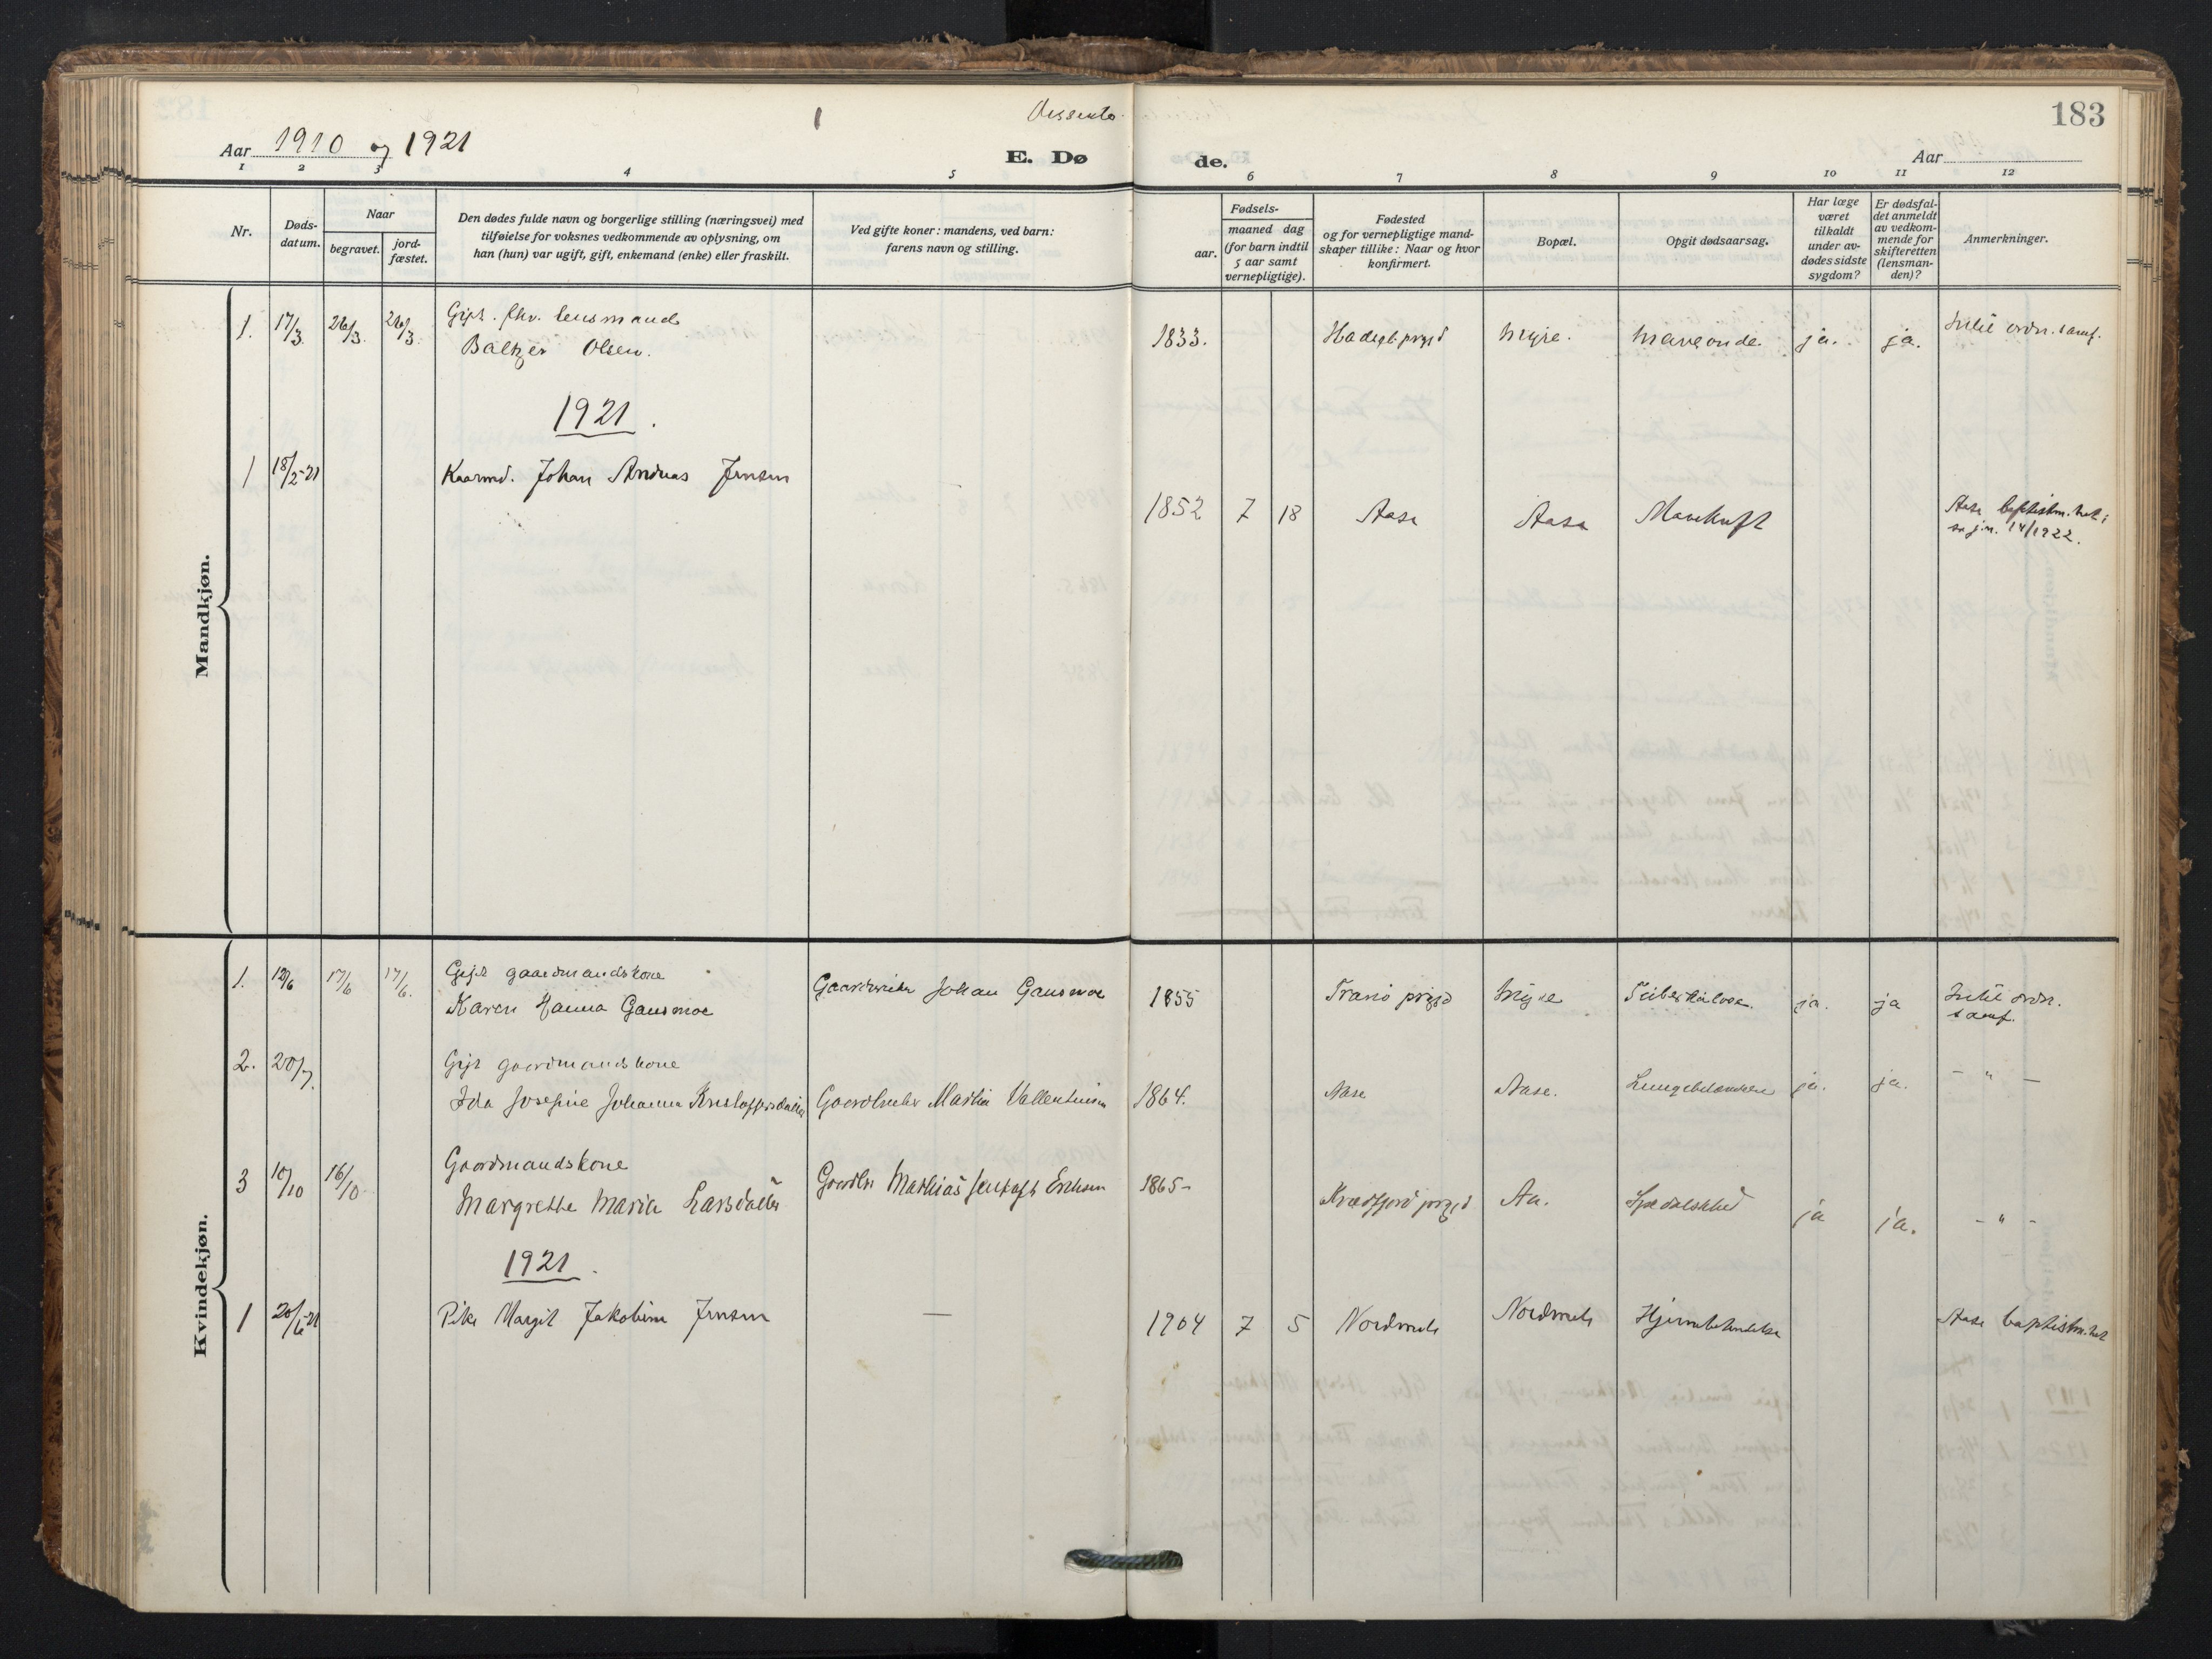 183
Dissenter
Aar 1910 og 1921
E. Døde.
Aar
1 2 3 4 5 6 7 8 9 10 11 12
Nr.
Døds-
datum.
Naar
begravet.
jord-
fæstet.
Den dødes fulde navn og borgerlige stilling (næringsvei) med
tilføielse for voksnes vedkommende av oplysning, om
han (hun) var ugift, gift, enkemand (enke) eller fraskilt.
Ved gifte koner: mandens, ved barn:
farens navn og stilling.
Fødsels-
aar.
maaned dag
(for barn indtil
5 aar samt
vernepligtige).
Fødested
og for vernepligtige mand-
skaper tillike: Naar og hvor
konfirmert.
Bopæl.
Opgit dødsaarsag.
Har læge
været
tilkaldt
under av-
dødes sidste
sygdom?
Er dødsfal-
det anmeldt
av vedkom-
mende for
skifteretten
(lensman-
den)?
Anmerkninger.
Mandkjøn.
1. 17/3 26/3. 26/3. Gift. fhv. lensmand
Baltzer Olsen. 1833. Hadsel prgjd Myre. Maveonde. ja. ja. ordn. samf.
1921.
1 18/2-21 Kaarmd. Johan Andreas Jensen 1852 7 18 Aase Aase Mavekræft Aase baptistm.het i
sa j.n. 14/1922.
Kvindekjøn.
1. 12/6 17/6 17/6. Gift gaardmandskone
Karen Hanna Gausmoe Gaardbruker Johan Gausmoe 1855 Tranø prgjd Myre Tuberkulose. ja. ja ordn.
samf.
2. 20/7. Gift gaardmandskone
Ida Josefine Johanna Kristoffersdatter Gaardbruker Martin Vallentinsen 1864. Aase Aase. Lungebetændelse ja. ja. - " -
3 10/10 16/10 Gaardmandskone
Margrethe Maria Larsdatter Gaardbr Mathias Erichsen 1865 - Kvædfjord prgjd Aa. Spedalskhed ja ja. - " -
1921.
1 20/6-21 Pike Margit Jakobine Jensen — 1904 7 5 Nordmela Nordmela Hjernebetændelse Aase baptistm.het